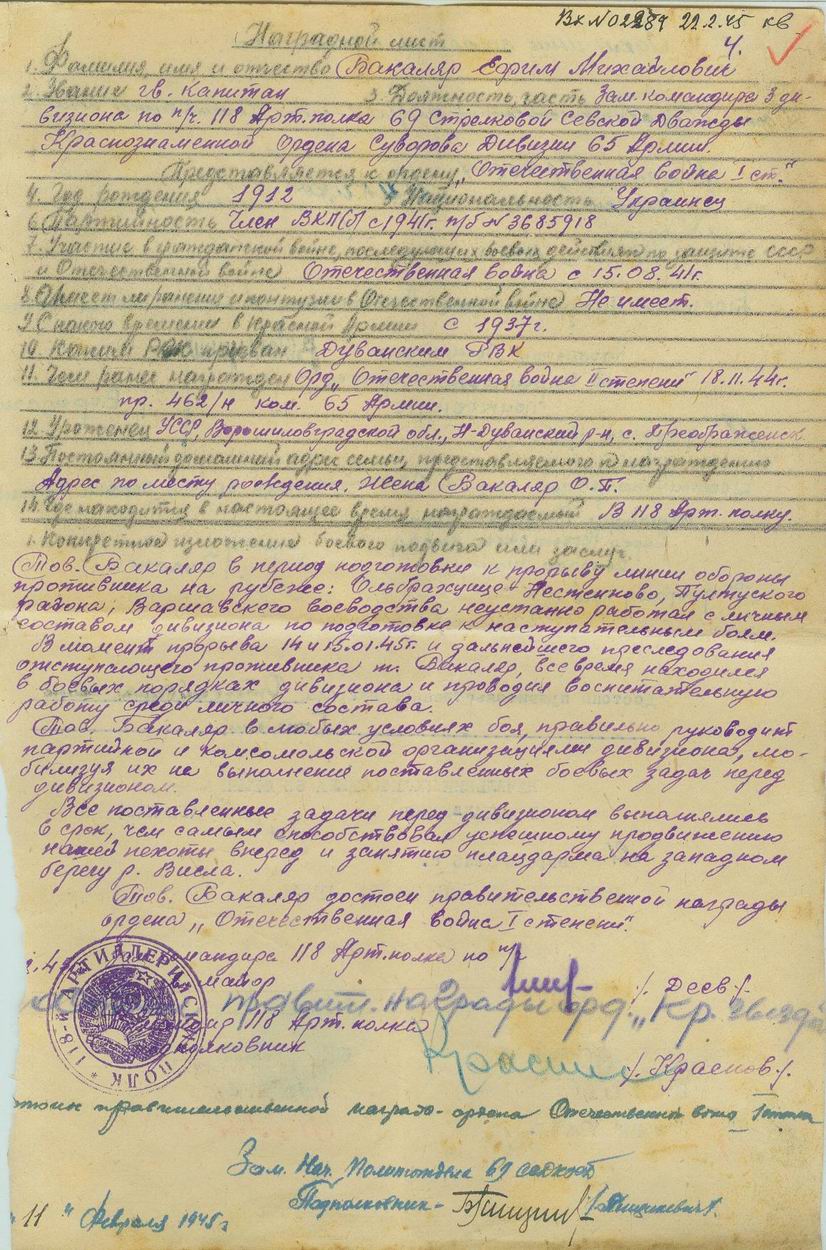 Вх № 02284 22.2.45 кв
Наградной лист
4.
1. Фамилия, имя и отчество Бакаляр Ефим Михайлович
2. Звание гв. Капитан 3. Должность, часть Зам. командира 3 ди-
визиона по п/ч. 118 Арт. полка 69 Стрелковой Севской Дважды
Краснознаменной Ордена Суворова Дивизии 65 Армии.
Представляется к ордену „Отечественная война I ст."
4. Год рождения 1912 5. Национальность Украинец
6. Партийность Член ВКП(б) с 1941г. п/б № 3685918
7. Участие в гражданской войне, последующих боевых действиях по защите СССР
и Отечественной войне Отечественная война с 15.08.41г.
8. Имеет ли ранения и контузии в Отечественной войне Не имеет.
9. С какого времени в Красной Армии с 1937г.
10. Каким РВК призван Дуванским РВК
11. Чем ранее награжден Орд. „Отечественная война II степени" 18.11.44г.
пр. 462/н ком. 65 Армии.
12. Уроженец УССР, Ворошиловградской обл., Н-Дуванский р-н, с. Преображенск.
13. Постоянный домашний адрес семьи, представляемого к награждению
Адрес по месту рождения. Жена Бакаляр О.П.
14. Где находится в настоящее время награждаемый В 118 Арт. полку.
1. Конкретное изложение боевого подвига или заслуг.
Тов. Бакаляр в период подготовки к прорыву линии обороны
противника на рубеже: Ольбражцице Нестенково, Пултуского
района, Варшавского воеводства неустанно работал с личным
составом дивизиона по подготовке к наступательным боям.
В момент прорыва 14 и 15.01.45г. и дальнейшего преследования
отступающего противника т. Бакаляр, все время находился
в боевых порядках дивизиона и проводил воспитательную
работу среди личного состава.
Тов. Бакаляр в любых условиях боя, правильно руководит
партийной и комсомольской организациями дивизиона, мо-
билизуя их на выполнение поставленных боевых задач перед
дивизионом.
Все поставленные задачи перед дивизионом выполнялись
в срок, чем самым способствовал успешному продвижению
нашей пехоты вперед и занятию плацдарма на западном
берегу р. Висла.
Тов. Бакаляр достоен правительственной награды
ордена „Отечественная война I степени".
командира 118 Арт. полка по п/ч
майор /. Деев /.
правит. награды орд. „Кр. Звезда
118 Арт. полка
полковник /. Краснов /.
118-й АРТИЛЛЕРИЙСКИЙ ПОЛК
правительственной награды - ордена Отечественной война I степени
Зам. Нач. Политотдела 69
Подполковник -
"11" Февраля 1945г